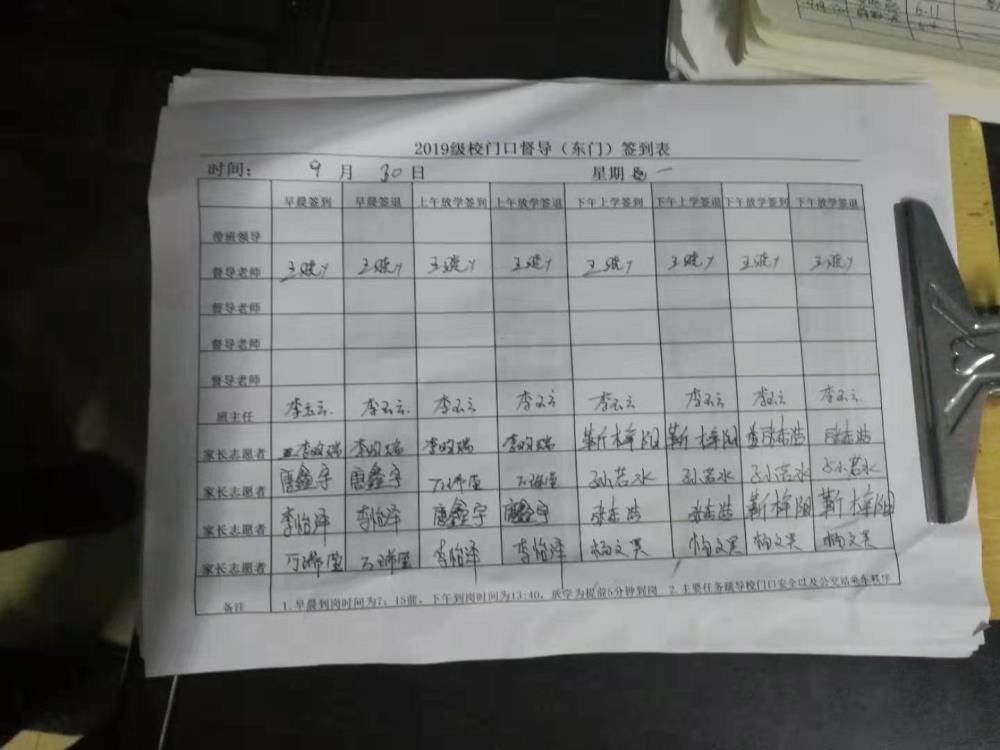 6.11
2019级校门口督导（东门）签到表
时间： 9 月 30 日 星期 一
早晨签到 早晨签退 上午放学签到 上午放学签退 下午上学签到 下午上学签退 下午放学签到 下午放学签退
带班领导
督导老师
督导老师
督导老师
督导老师
班主任 李玉云 李玉云 李玉云 李玉云 李玉云 李玉云 李玉云 李玉云
家长志愿者 靳梓阳 靳梓阳 张东浩 张东浩
家长志愿者 唐鑫宇 唐鑫宇 万瑞莹 万瑞莹 孙若水 孙若水 孙若水 孙若水
家长志愿者 李怡泽 李怡泽 唐鑫宇 唐鑫宇 张东浩 张东浩 靳梓阳 靳梓阳
家长志愿者 万瑞莹 万瑞莹 李怡泽 李怡泽 杨文昊 杨文昊 杨文昊 杨文昊
备注 1.早晨到岗时间为7：15前，下午到岗时间为13:40，放学为提前5分钟到岗 2.主要任务疏导校门口安全以及公交站乘车秩序